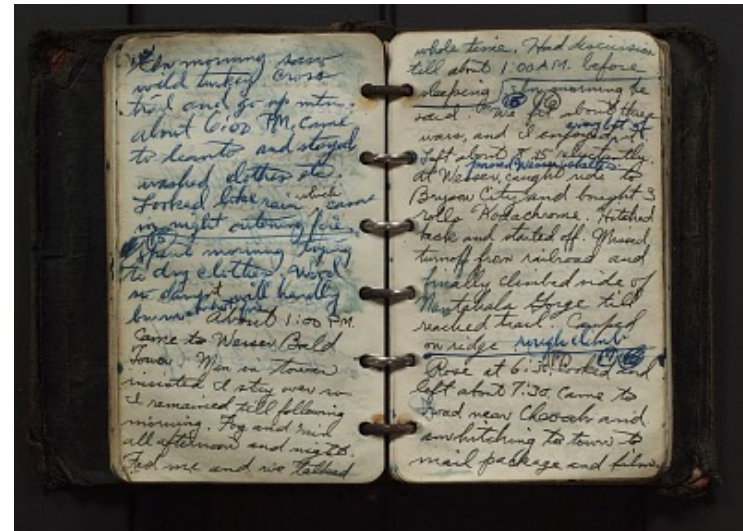 In morning saw
wild turkey cross
trail and go up mtn.
about 6:00 PM, came
to leanto and stayed
washed clothes etc.
Looked like rain which came
in night putting fire
Spent morning trying
to dry clothes, wood
so damp it will hardly
burn
About 1:00 PM.
Came to Wesser Bald
Tower. Men in tower
insisted I stay over so
I remained till following
morning. Fog and rain
all afternoon and night.
Fed me and we talked
whole time. Had discussion
till about 1:00 AM. before
sleeping In morning he
said "We fit about three
wars, and I enjoyed every bit of it
Left about 8:15 reluctantly.
from Wesser
at Wesser, caught ride to
Bryson City and bought 3
rolls Kodachrome. Hitched
back and started off. Missed
turnoff from railroad and
finally climbed side of
Nantahala Gorge till
reached trail. Camped
on ridge rough climb
Rose at 6:30, cooked and
left about 7:30. Came to
road near Cheoah and
am hitching to town to
mail package and film.